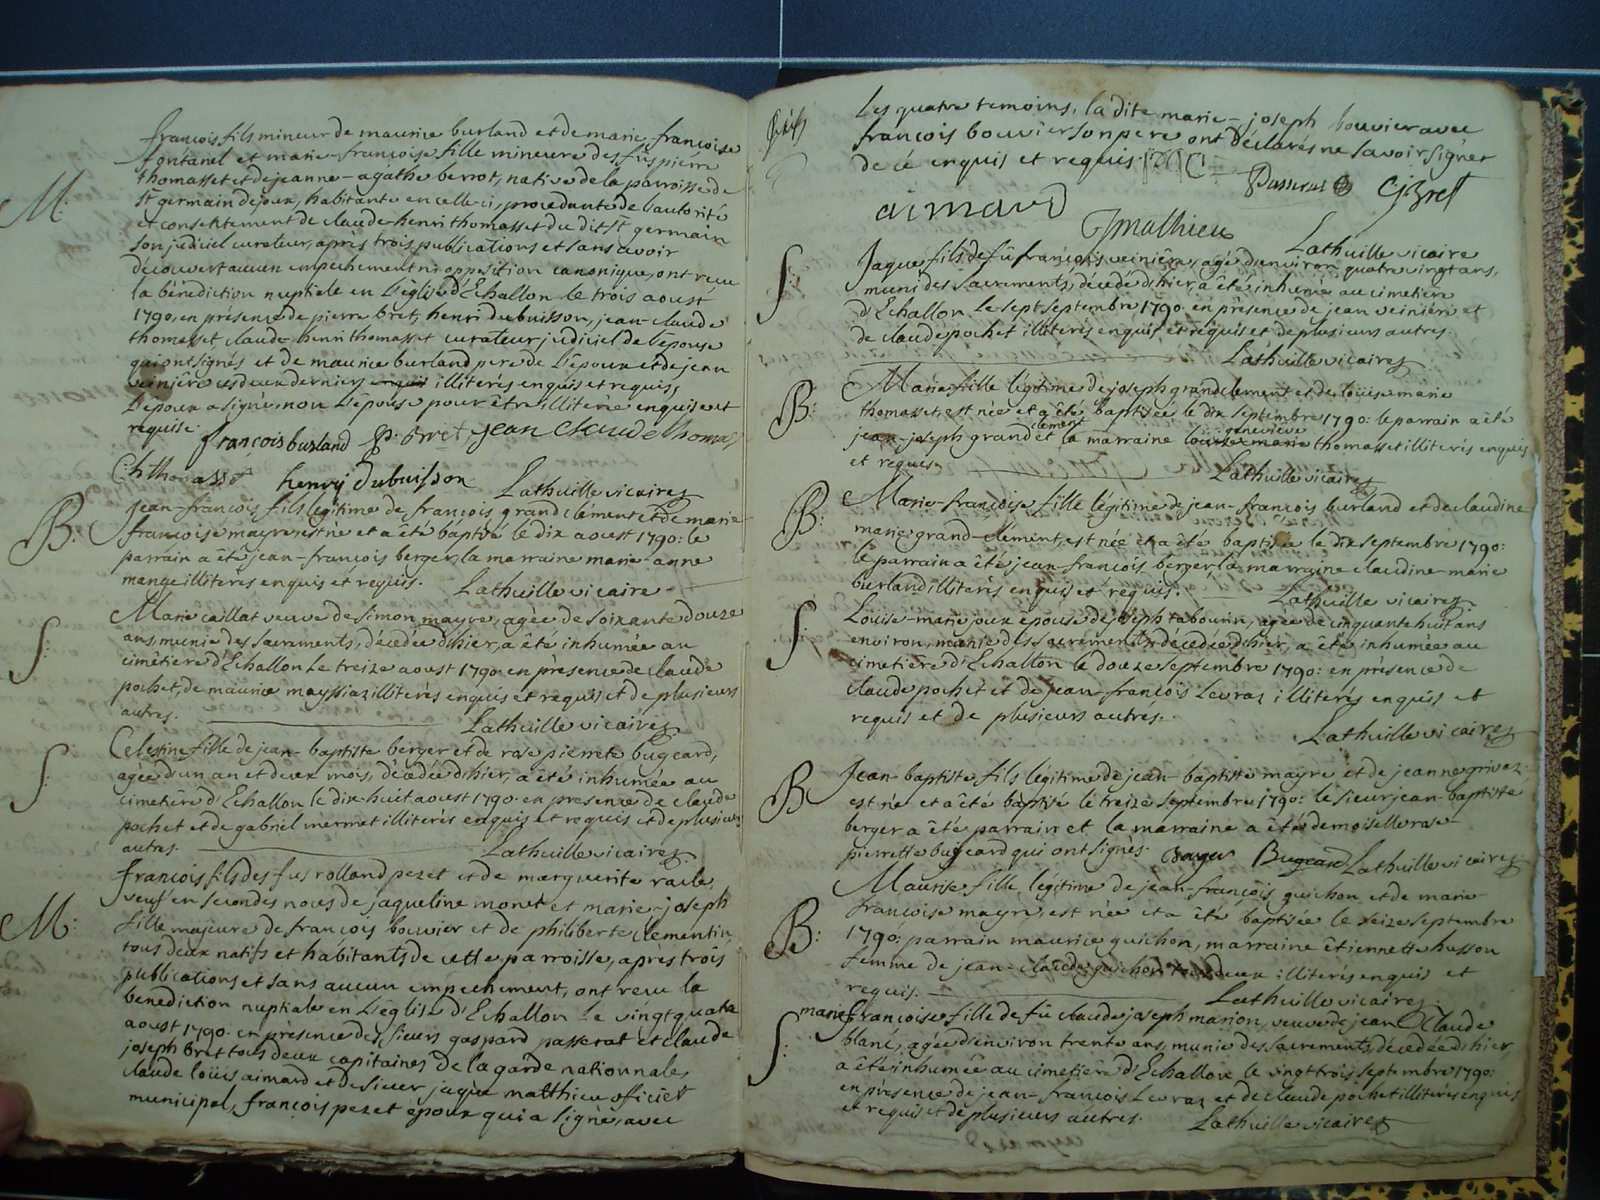 françois fils mineur de maurice burland et de marie-françoise
fontanel et marie-françoise fille mineure des fûs pierre
thomasset et de jeanne-agathe berrot, native de la parroisse de
M: st germain de joux, habitante en celle-ci, procédante de l'autorité
et consentement de claude-henri thomasset du dit st germain
son judiciel curateur, après trois publications et sans avoir
découvert aucun empechement ni opposition canonique, ont recu
la bénédiction nuptiale en l'église d'Echallon le trois aoust
1790, en présence de pierre bret, henri dubuisson, jean-claude
thomasset claude-henri thomasset curateur judiciel de l'epouse
qui ont signés et de maurice burland pere de l'epoux et de jean
veinière ces deux derniers illiterés enquis et requis,
l'epoux a signé, non l'épouse pour être illiterée enquise et
requise.
françois burland P. Bret, jean claude thomas
C h thomasset henry Dubuisson Lathuille vicaire
B: jean-françois fils légitime de françois grand clément et de marie
françoise mayre, est né et a été baptisé le dix aoust 1790: le
parrain a été jean-françois berger, la marraine marie-anne
mange illiterés enquis et requis. Lathuille vicaire
S: Marie caillat veuve de simon mayre, agée de soixante douze
ans, munie des sacrements, décédée d'hier, a été inhumée au
cimetière d'Echallon le treize aoust 1790 en présence de claude
pochet, de maurice mayssiaz illiterés enquis et requis et de plusieurs
autres. Lathuille vicaire
S: Celestine fille de jean-baptiste berger et de rose pierrete bugeard,
agée d'un an et deux mois, décédée d'hier, a été inhumée au
cimetière d'Echallon le dix-huit aoust 1790 en presence de claude
pochet et de gabriel mermet illiterés enquis et requis et de plusieurs
autres. Lathuille vicaire
françois fils des fûs rolland pezet et de marguerite
veuf en secondes noces de jaqueline monet et marie-joseph
M: fille majeure de françois bouvier et de philiberte clementin
tous deux natifs et habitants de cette parroisse, apres trois
publications et sans aucun empechement, ont recu la
benediction nuptiale en l'église d'Echallon le vingt quatre
aoust 1790. en présence des sieurs gaspard passerat et claude
joseph bret tous deux capitaines de la garde nationnale,
claude loüis aimard et de sieur jaque matthieu officier
municipal, françois pezet époux qui a signé, avec
Les quatre temoins, la dite marie-joseph bouvier avec
françois bouvier son pere ont déclarés ne savoir signer
de ce enquis et requis. Passerat CJBret
aimard
Jmathieu Lathuille vicaire
S: Jaque fils de fû françois veinière, agé d'environ quatre vingt ans,
muni des sacrements, décédé d'hier, a été inhumé au cimetière
d'Echallon le sept septembre 1790. en présence de jean veinière et
de claude pochet illiterés enquis et requis et de plusieurs autres.
Lathuille vicaire
B: Marie fille légitime de joseph grand clement et de loüise marie
thomasset, est née et a été baptisée le dix septembre 1790: le parrain a été
jean-joseph grand clement et la marraine geneviève thomasset illiterés enquis
et requis. Lathuille vicaire
B: Marie-françoise fille légitime de jean-françois burland et de claudine
marie grand-clément, est née et a été baptisée le dix septembre 1790:
le parrain a été jean-françois berger, la marraine claudine-marie
burland illiterés enquis et requis. Lathuille vicaire
S: Loüise-marie joux epouse de joseph tabourin, agée de cinquante huit ans
environ, munie des sacrements, décédée d'hier, a été inhumée au
cimetière d'Echallon le douze septembre 1790: en présence de
claude pochet et de jean-françois Levraz illiterés enquis et
requis et de plusieurs autres.
Lathuille vicaire
B Jean-baptiste fils légitime de jean-baptiste mayre et de jeanne privaz
est né et a été baptisé le treize septembre 1790: le sieur jean-baptiste
berger a été parrain et la marraine a été demoiselle rose-
pierrette bugeard qui ont signés. Berger Bugeard Lathuille vicaire
Maurise fille légitime de jean-françois guichon et de marie
B: françoise mayre, est née et a été baptisée le seize septembre
1790; parrain maurice guichon, marraine étiennette husson
femme de jean-claude guichon tous deux illiterés enquis et
requis. Lathuille vicaire
marie françoise fille de fû claude joseph marion, veuve de jean Claude
S: blanc, agée d'environ trente ans, munie des sacrements, décédée d'hier
a été inhumée au cimetière d'Echallon le vingt trois septembre 1790:
en présence de jean-françois Levraz et de claude pochet illiterés enquis
et requis et de plusieurs autres. Lathuille vicaire